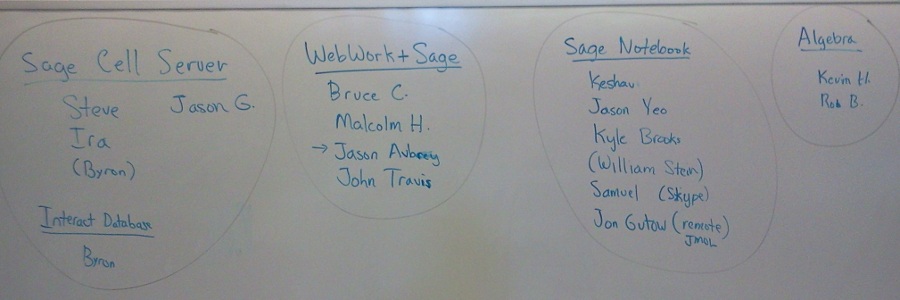 Sage Cell Server
Steve Jason G.
Ira
(Byron)
Interact Database
Byron
WebWork + Sage
Bruce C.
Malcolm H.
→ Jason Aubrey
John Travis
Sage Notebook
Keshav
Jason Yeo
Kyle Brooks
(William Stein)
Samuel (Skype)
Jon Gutow (remote)
JMOL
Algebra
Kevin H.
Rob B.